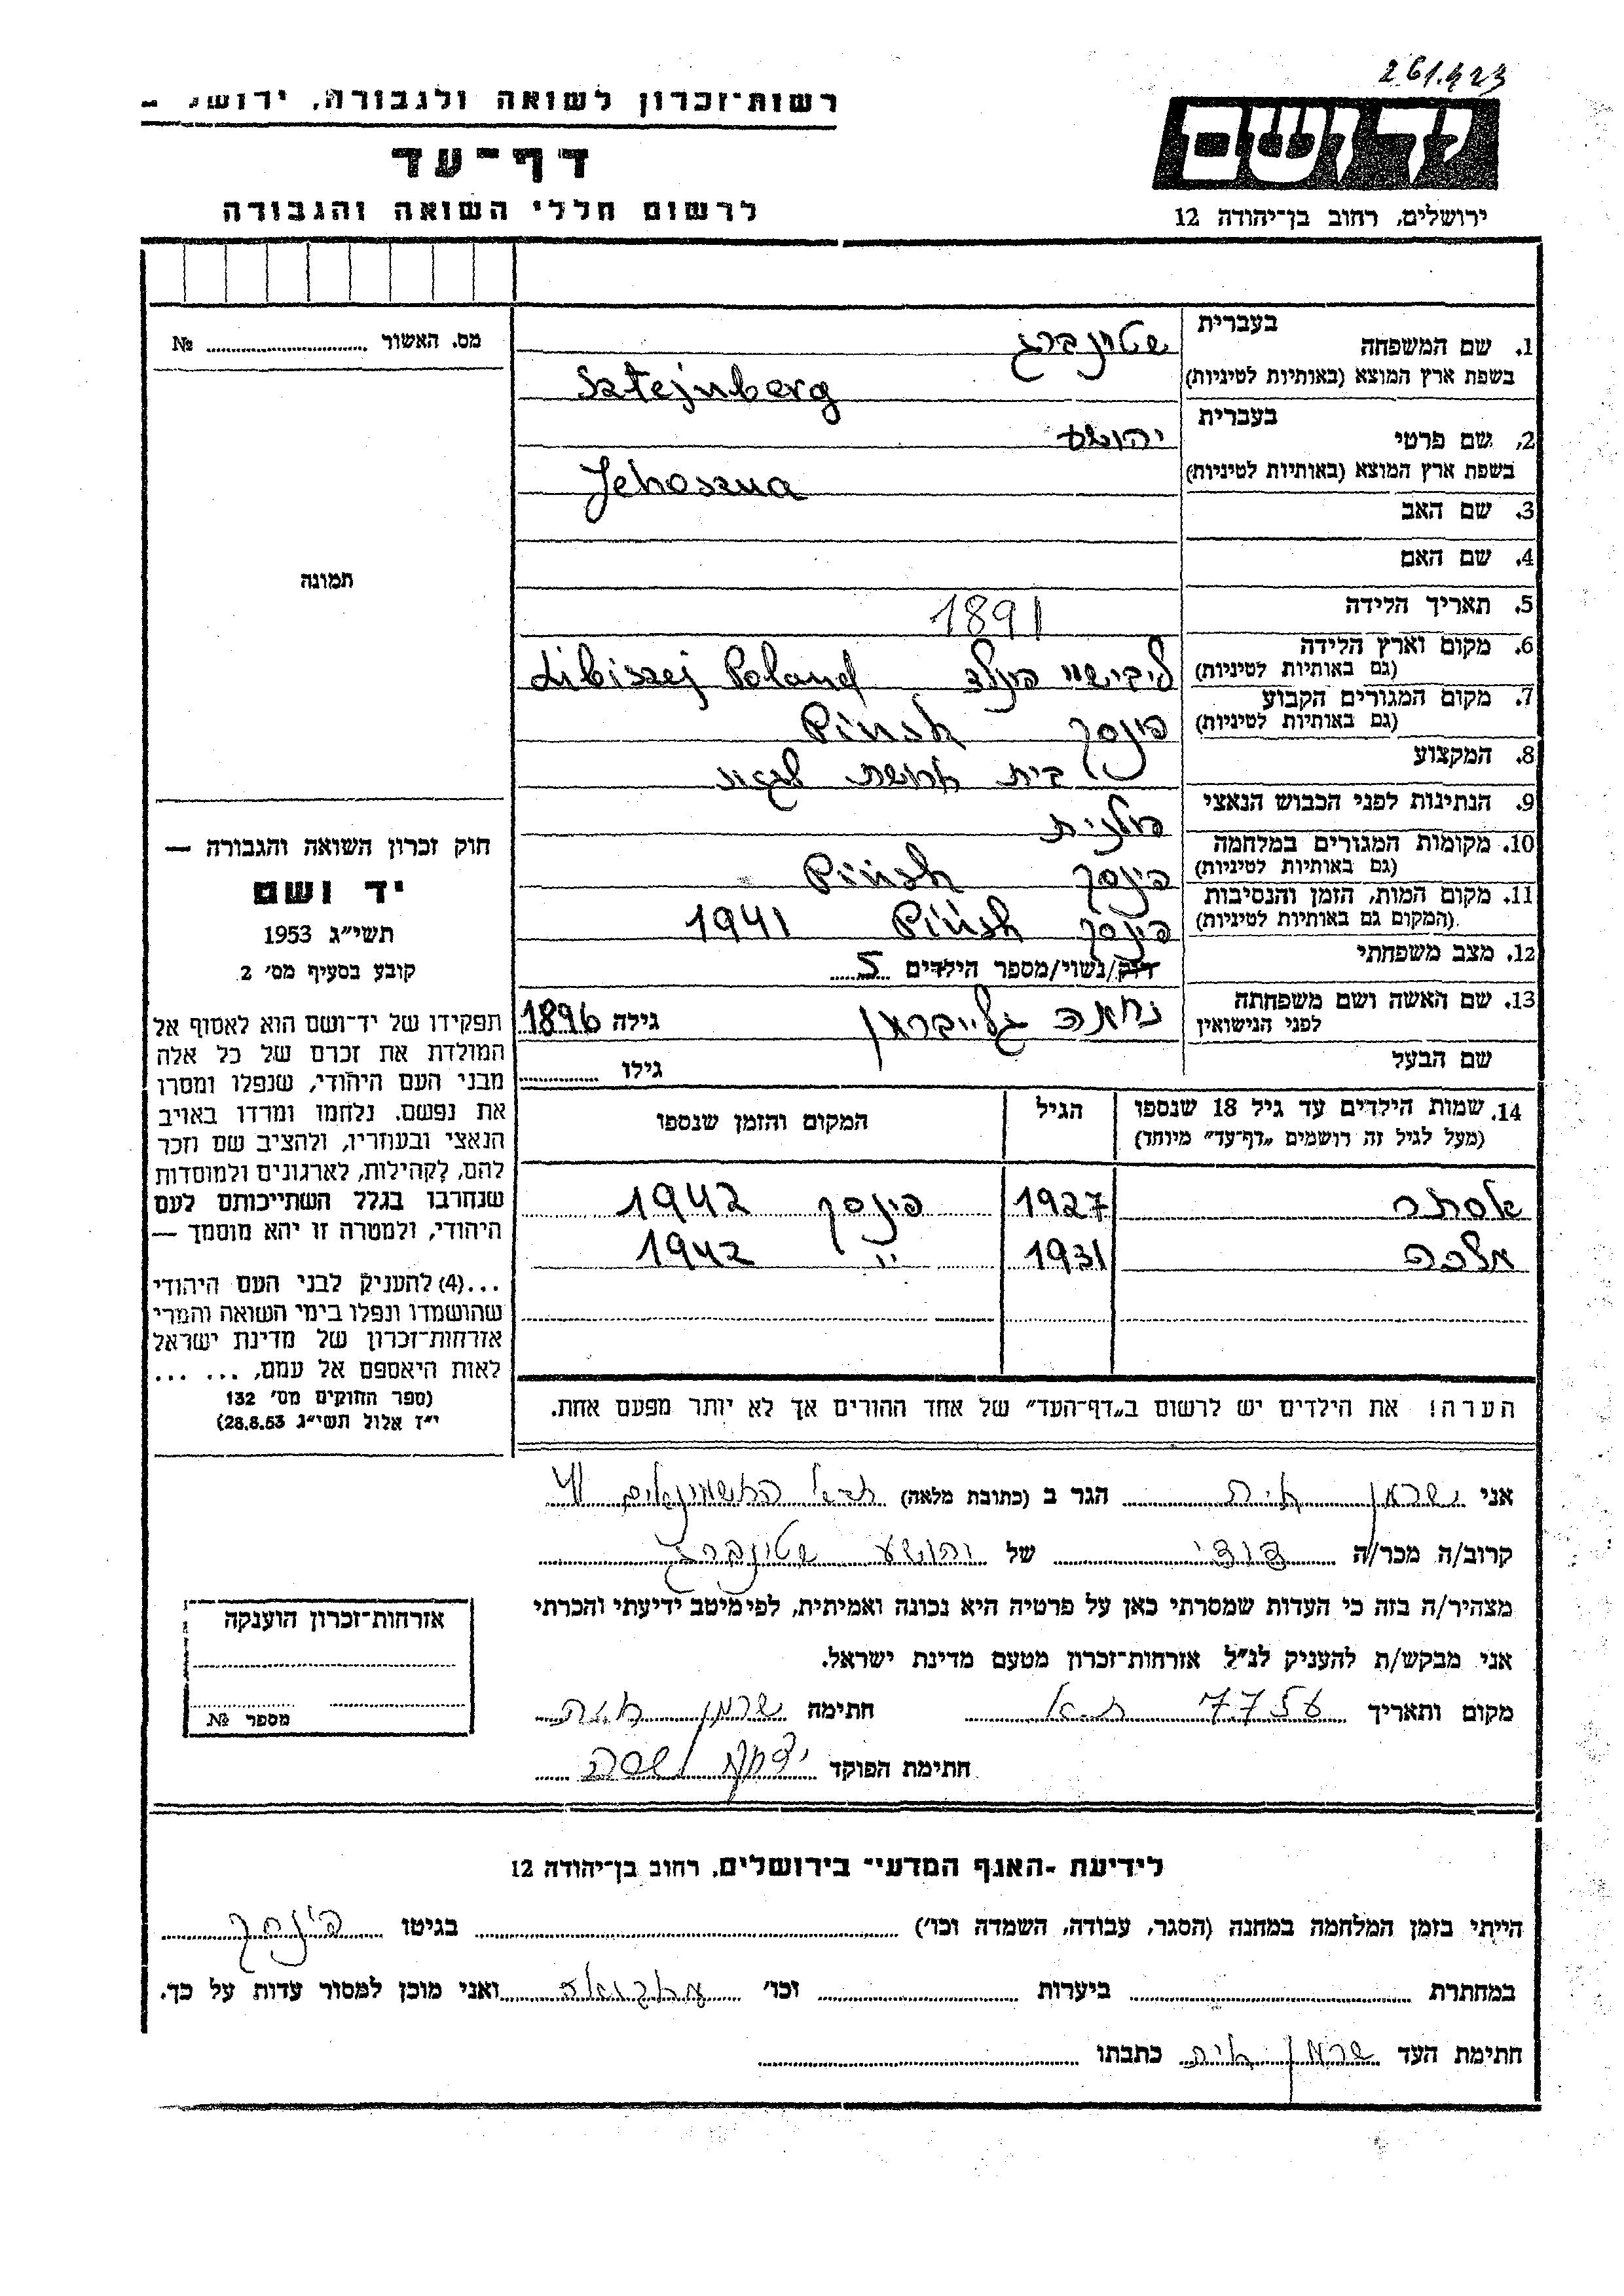 261.423
רשות־זכרון לשואה ולגבורה,
דף־עד
לרשום חללי השואה והגבורה
יד ושם
ירושלים, רחוב בן־יהודה 12
מס. האשור № 
תמונה
1. שם המשפחה
בעברית שטינברג
בשפת ארץ המוצא (באותיות לטיניות) Sztejnberg
2. שם פרטי
בעברית יהושע
בשפת ארץ המוצא (באותיות לטיניות) Jehoszua
3. שם האב
4. שם האם
5. תאריך הלידה 1891
6. מקום וארץ הלידה (גם באותיות לטיניות) ליבישיי פולד Libiszej Poland
7. מקום המגורים הקבוע (גם באותיות לטיניות) פינסק Pinsk
8. המקצוע בית חרושת
9. הנתינות לפני הכבוש הנאצי פולנית
10. מקומות המגורים במלחמה (גם באותיות לטיניות) פינסק Pinsk
11. מקום המות, הזמן והנסיבות (המקום גם באותיות לטיניות) פינסק Pinsk 1941
12. מצב משפחתי רווק/נשוי/מספר הילדים 5
13. שם האשה ושם משפחתה לפני הנישואין נחמה גלייברמן גילה 1896
שם הבעל גילו
14. שמות הילדים עד גיל 18 שנספו (מעל לגיל זה רושמים „דף־עד” מיוחד) הגיל המקום והזמן שנספו
אסתר 1927 פינסק 1942
מלכה 1931 " 1942
הערה! את הילדים יש לרשום ב„דף־העד” של אחד ההורים אך לא יותר מפעם אחת.
חוק זכרון השואה והגבורה —
יד ושם
תשי״ג 1953
קובע בסעיף מס׳ 2
תפקידו של יד־ושם הוא לאסוף אל
המולדת את זכרם של כל אלה
מבני העם היהודי, שנפלו ומסרו
את נפשם, נלחמו ומרדו באויב
הנאצי ובעוזריו, ולהציב שם וזכר
להם, לקהילות, לארגונים ולמוסדות
שנחרבו בגלל השתייכותם לעם
היהודי, ולמטרה זו יהא מוסמך —
...(4) להעניק לבני העם היהודי
שהושמדו ונפלו בימי השואה והמרי
אזרחות־זכרון של מדינת ישראל
לאות היאספם אל עמם, ... ...
(ספר החוקים מס׳ 132
י״ז אלול תשי״ג 28.8.53)
אני הגר ב (כתובת מלאה) החשמונאים
קרוב/ה מכר/ה דודי של יהושע שטינברג
מצהיר/ה בזה כי העדות שמסרתי כאן על פרטיה היא נכונה ואמיתית, לפי מיטב ידיעתי והכרתי
אני מבקש/ת להעניק לנ״ל אזרחות־זכרון מטעם מדינת ישראל.
מקום ותאריך 7.7.56 ת״א חתימה שרמן
חתימת הפוקד
אזרחות־זכרון הוענקה
מספר №
לידיעת ־האגף המדעי־ בירושלים, רחוב בן־יהודה 12
הייתי בזמן המלחמה במחנה (הסגר, עבודה, השמדה וכו׳) בגיטו פינסק
במחתרת ביערות וכו׳ ואני מוכן למסור עדות על כך.
חתימת העד שרמן כתבתו